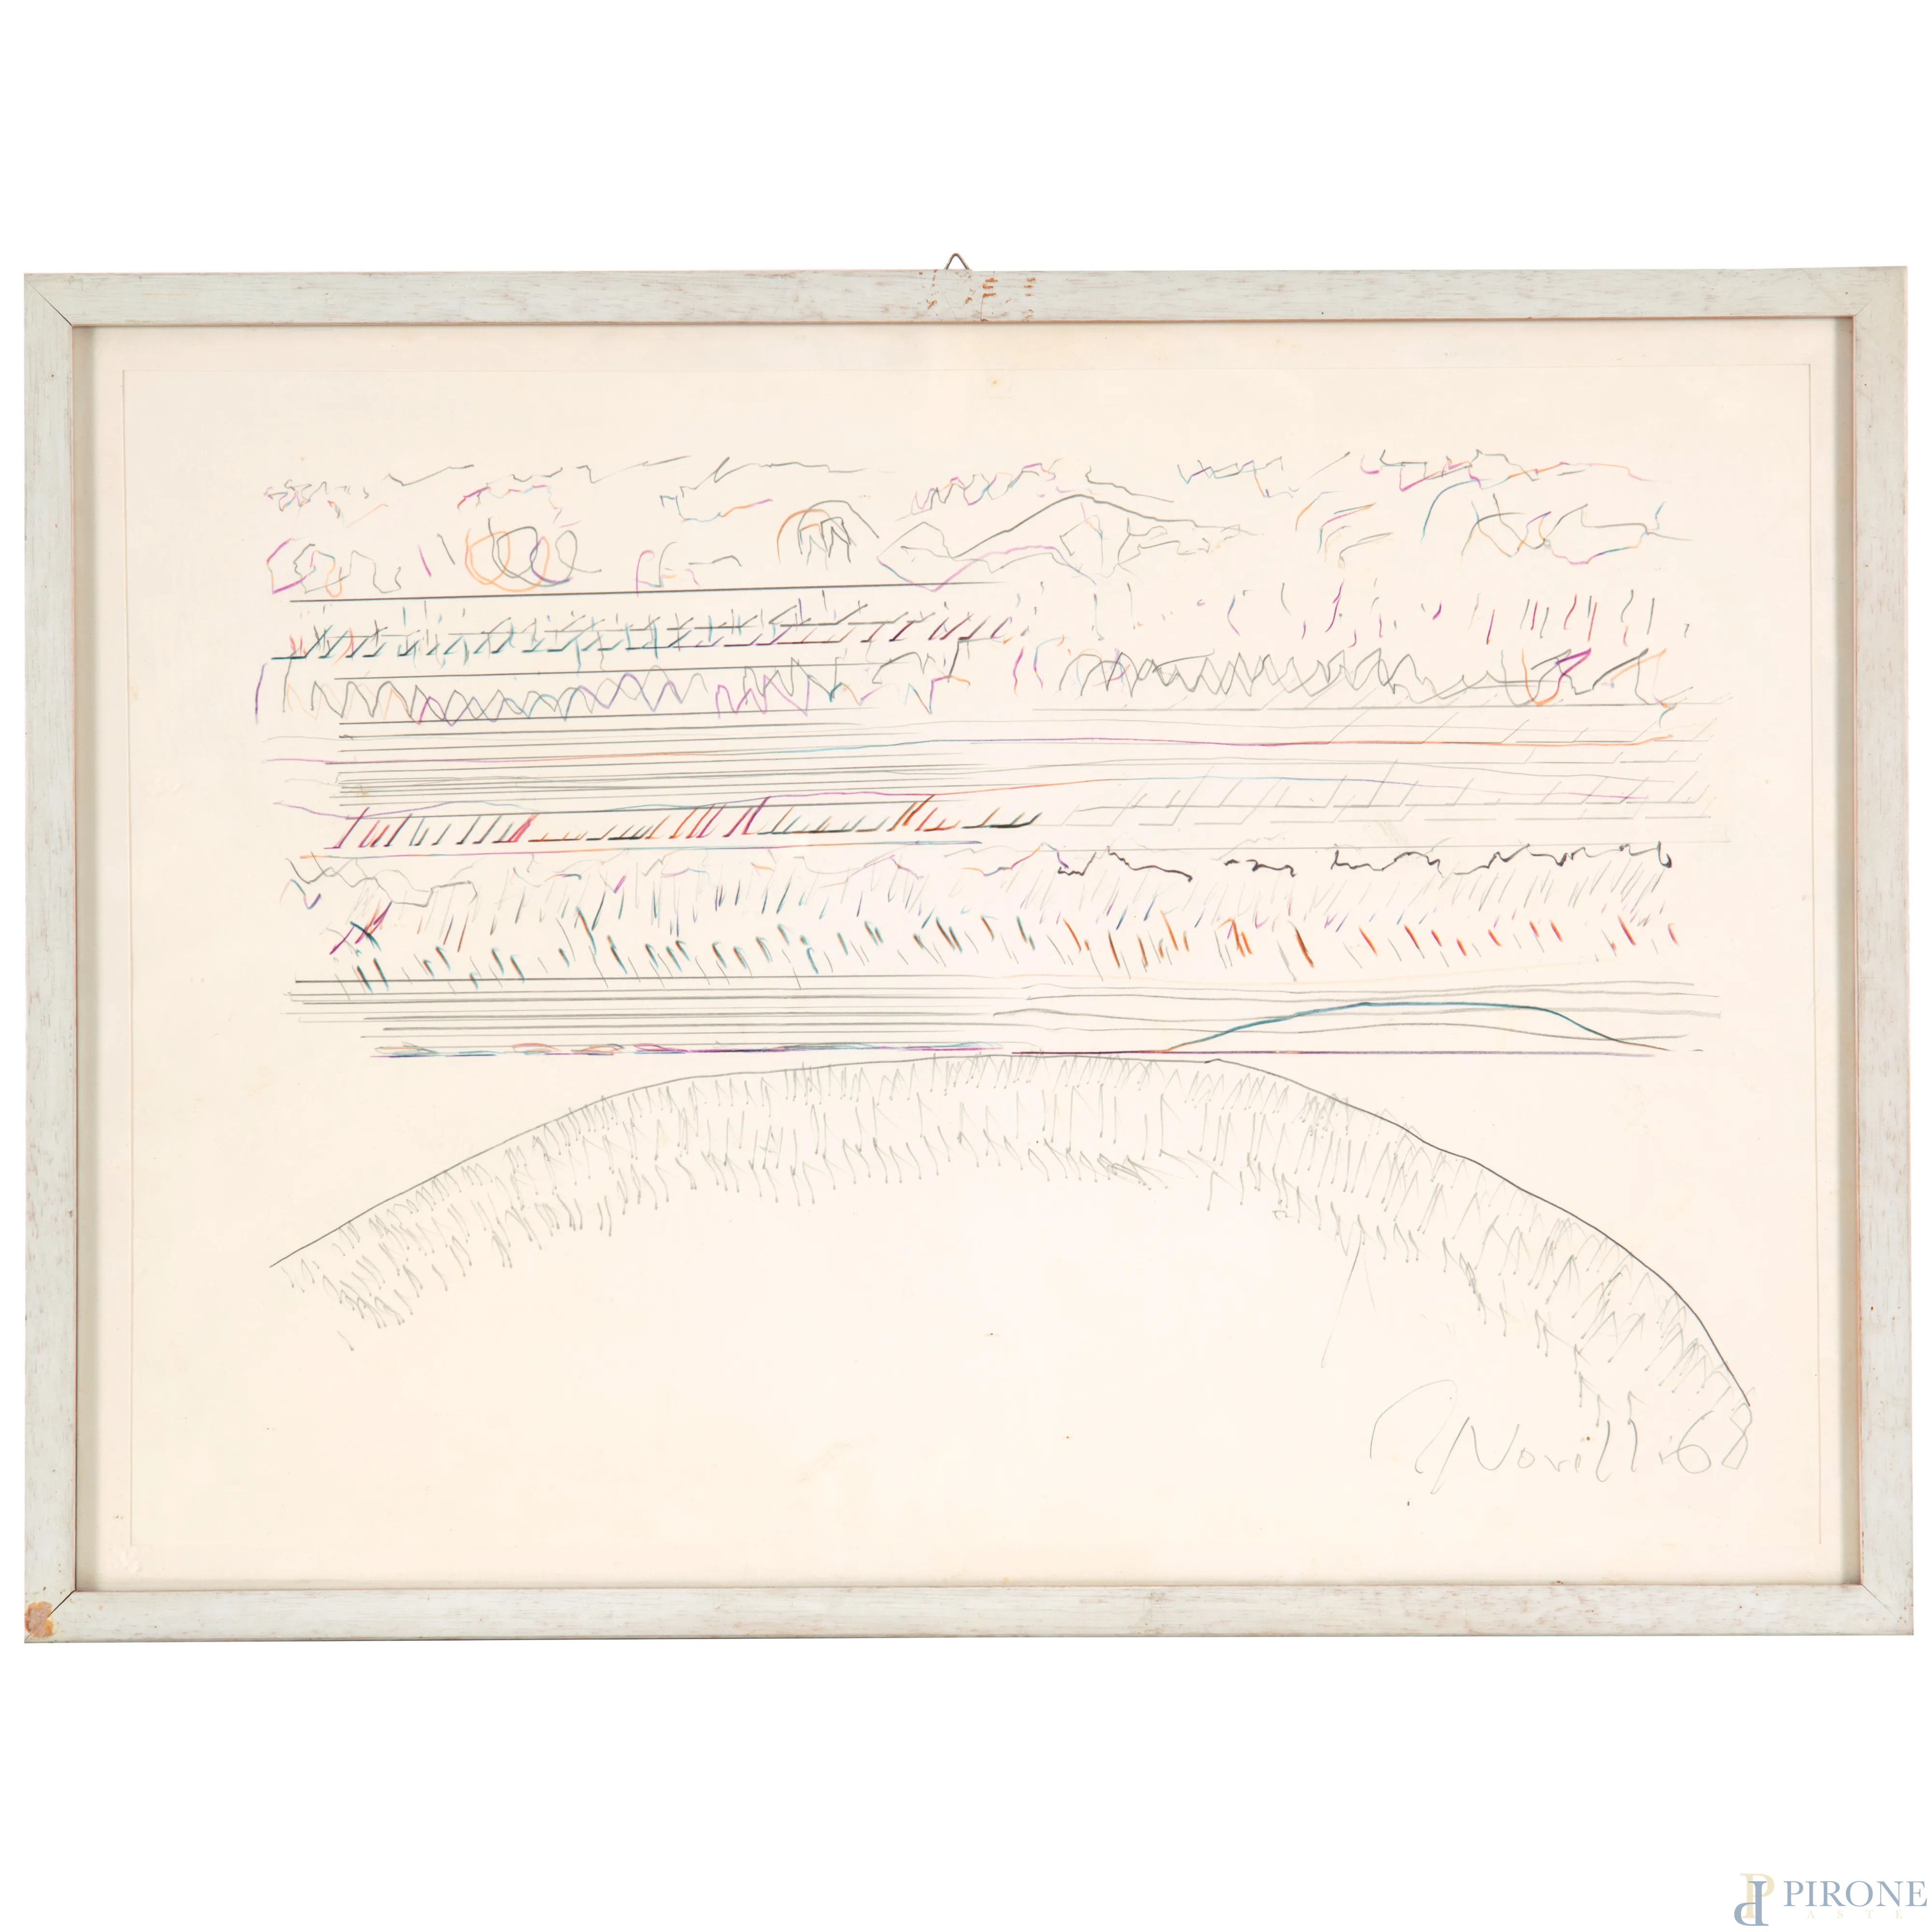 Novelli 68
PIRONE
ASTE